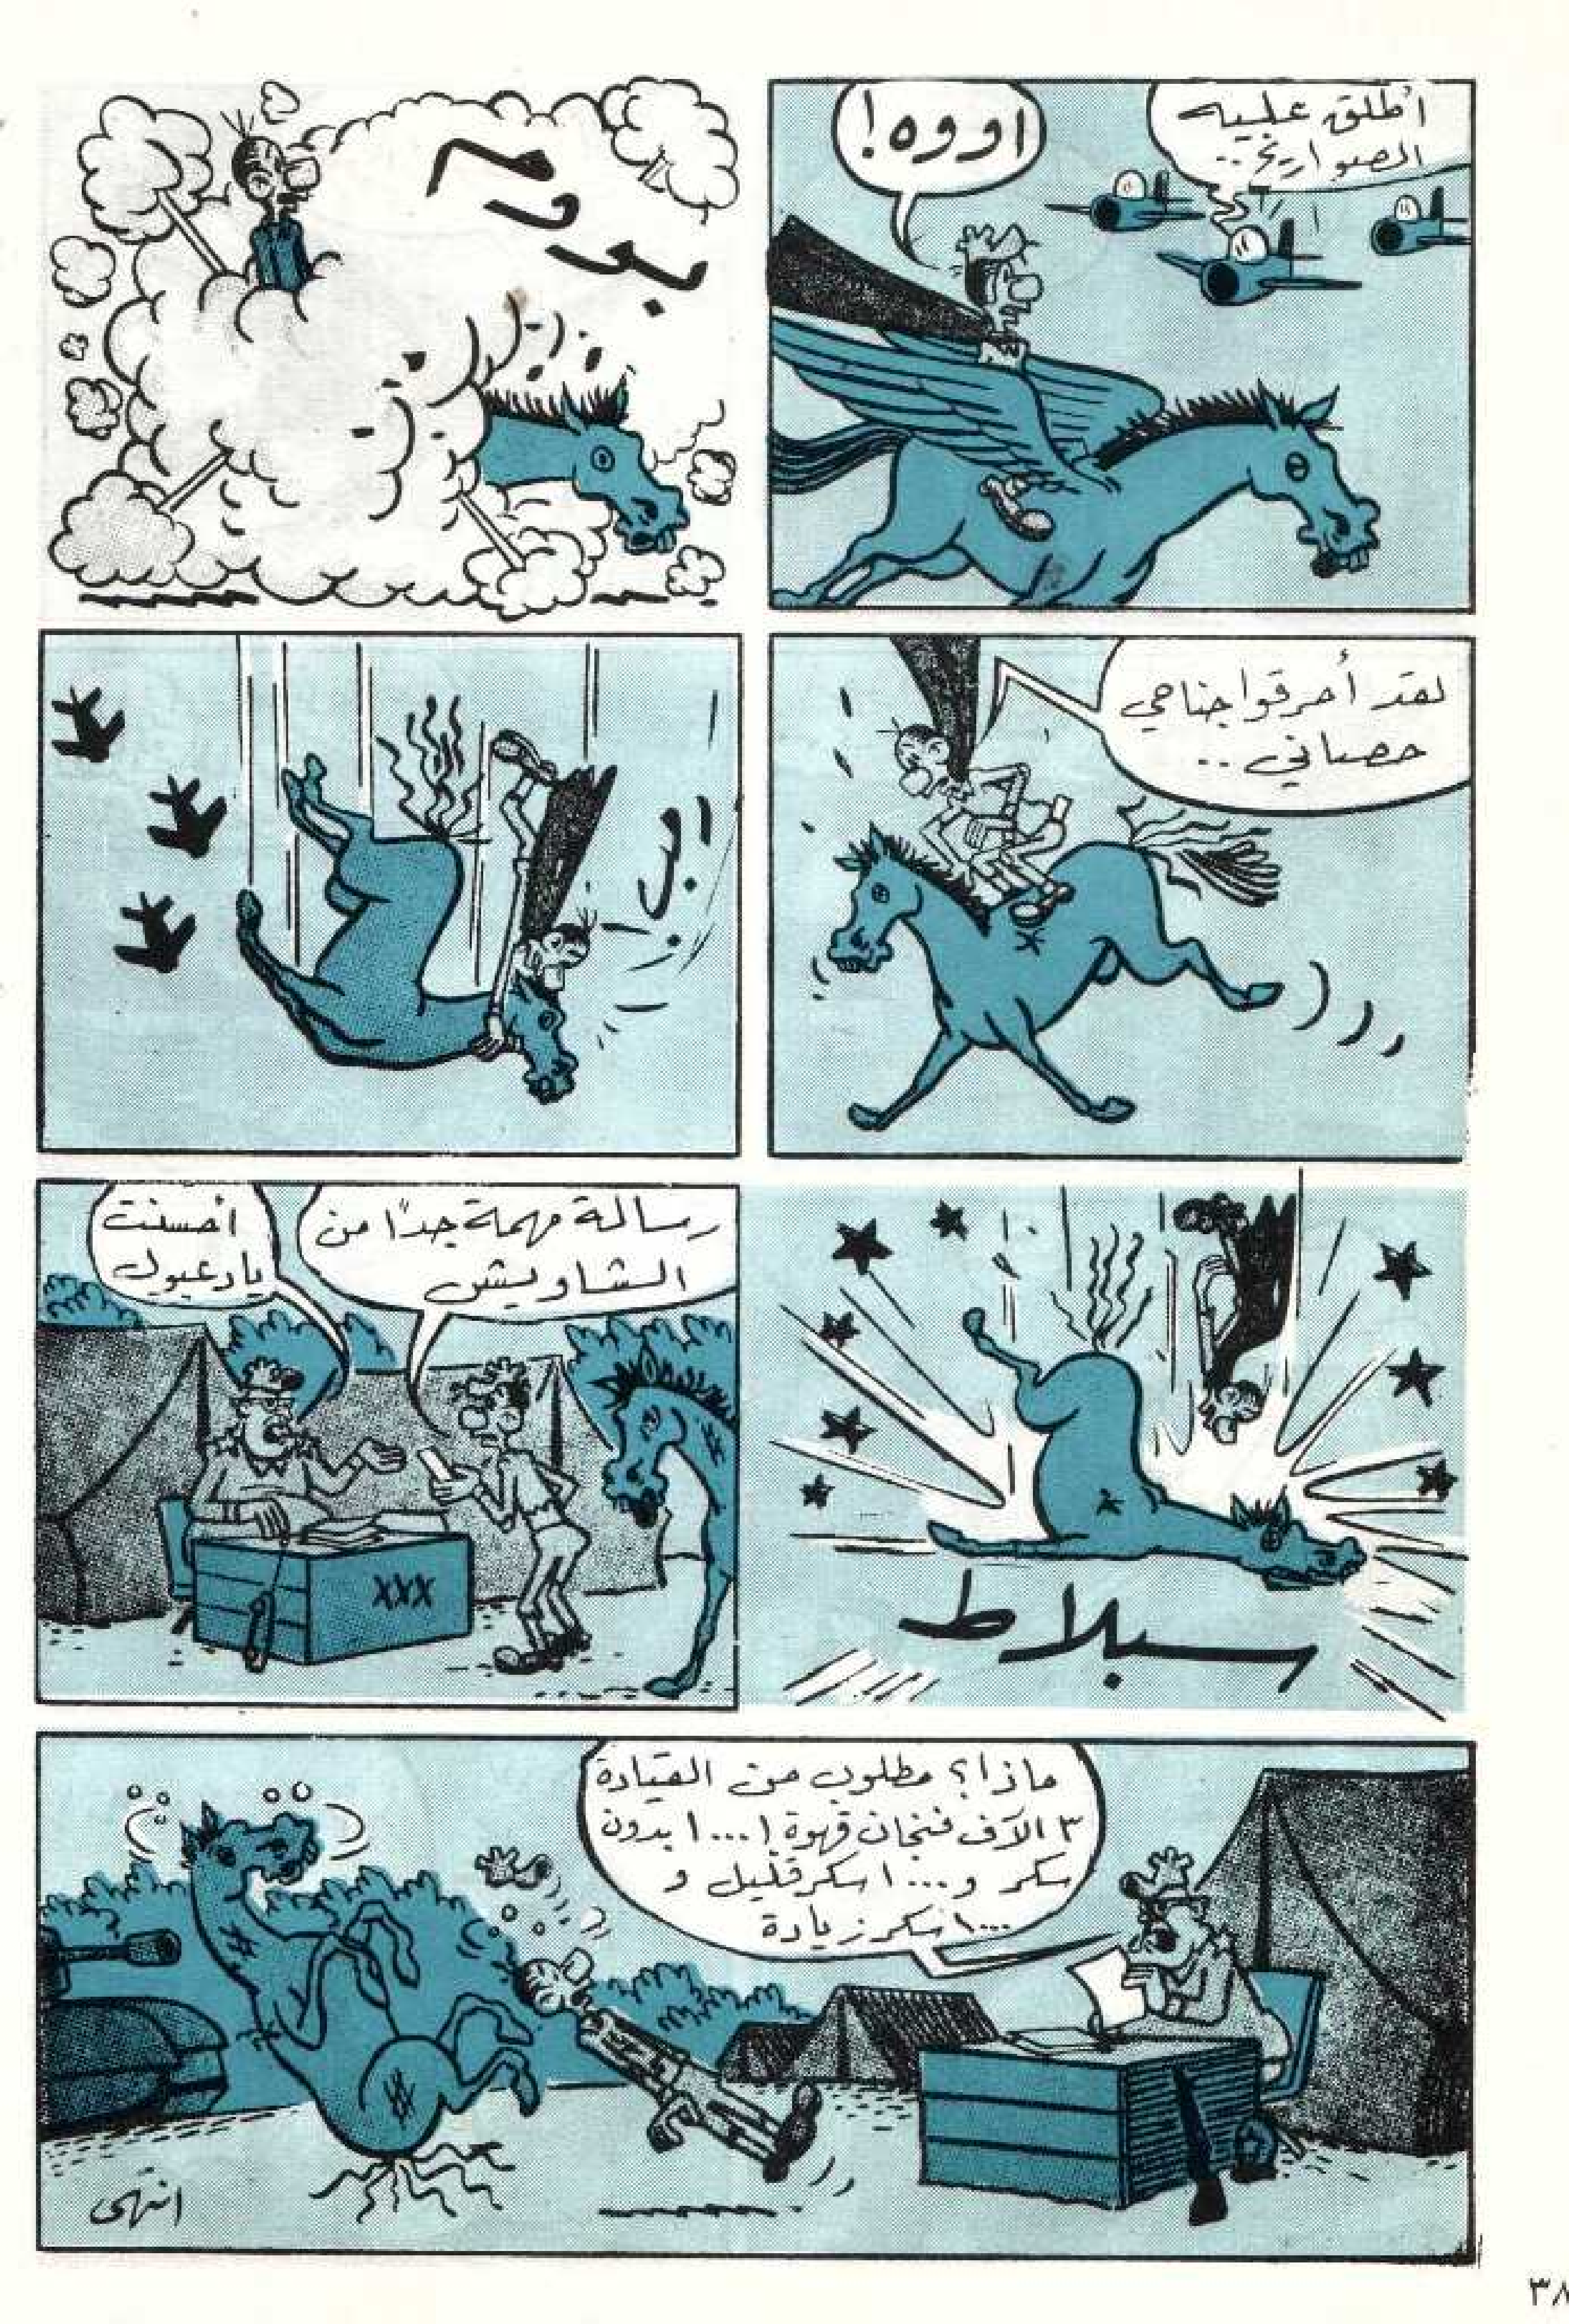 أطلق عليه
الصواريخ..
اووه!
بووم
لقد أحرقوا جناحي
حصاني..
سبلاط
رسالة مهمة جدًا من
الشاويش
أحسنت
يا دعبول
ماذا؟ مطلوب من القيادة
٣ الآف فنجان قهوة !...١ بدون
سكر و...١ سكر قليل و
...١ سكر زيادة
انتهى
٣٨